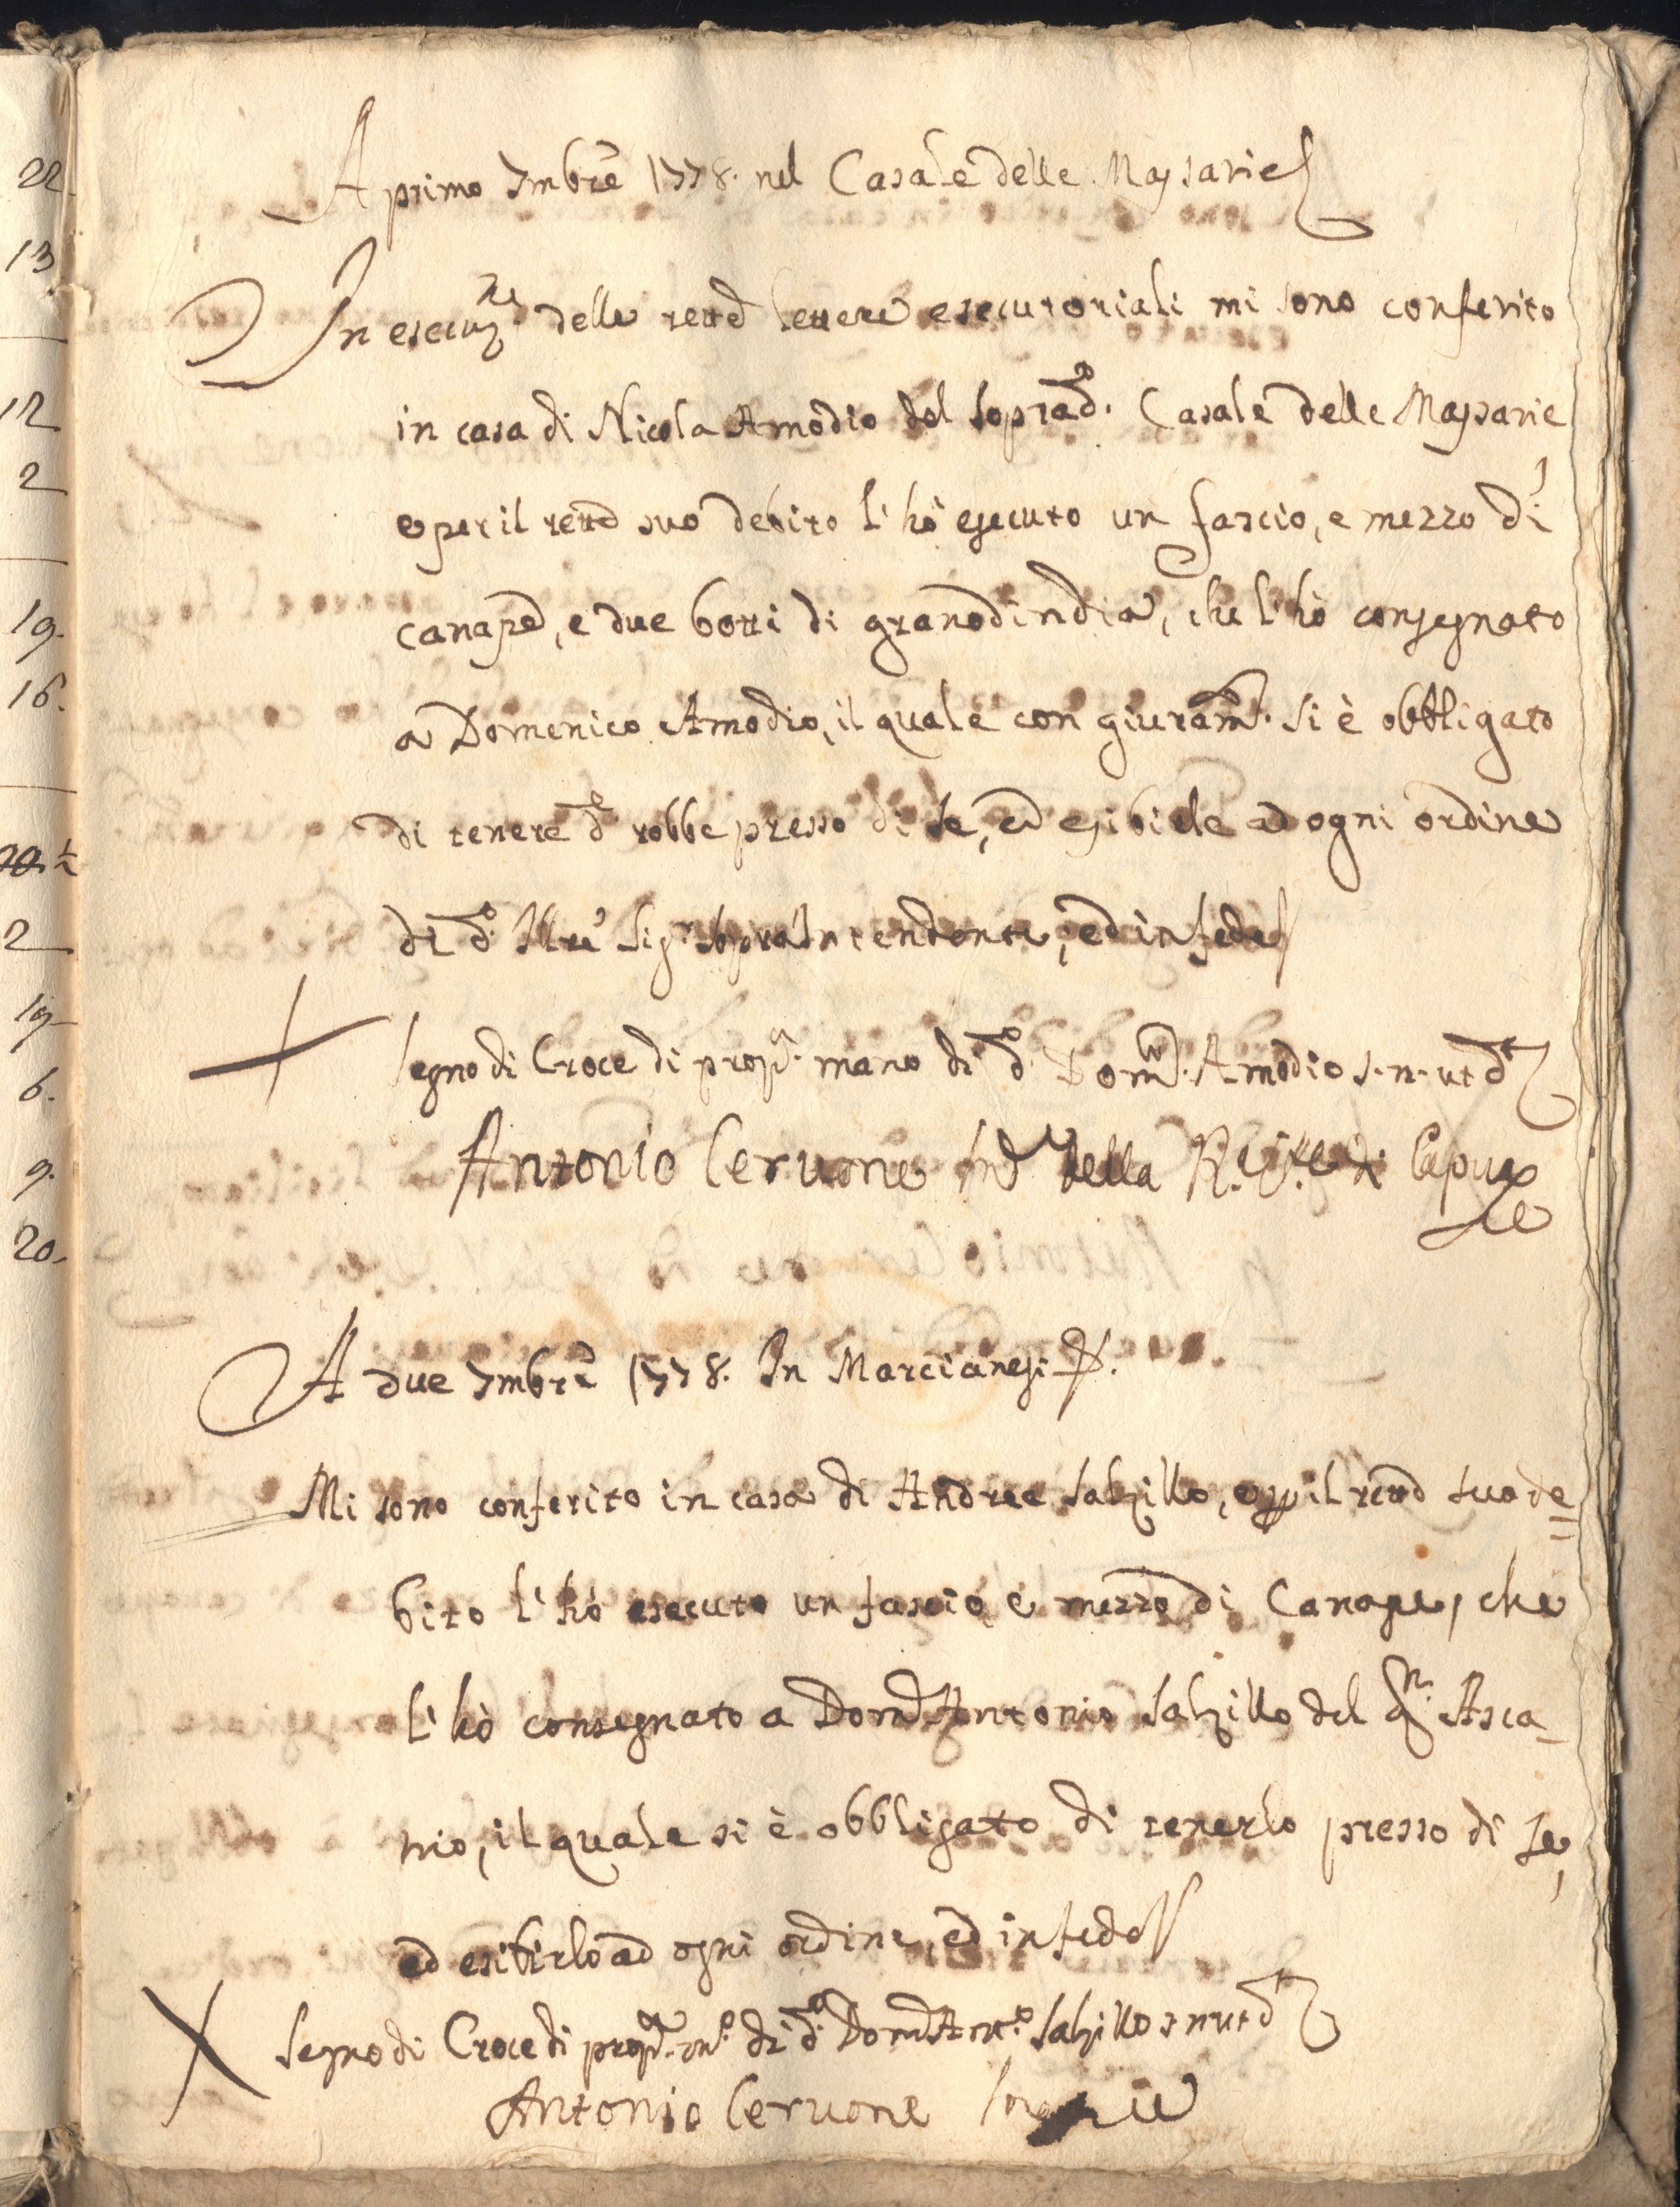 22
13
12
2
19.
16.
2
19
6.
9.
20.
A primo 7mbre 1778. nel Casale delle Massarie
In esecuz.ne delle retrod. lettere esecutoriali mi sono conferito
in casa di Nicola Amodio del soprad.o Casale delle Massarie
e per il retrod. suo debito l'hò esecuto un fascio, e mezzo di
canape, e due botti di granodindia, che l'hò consegnato
a Domenico Amodio, il quale con giuram.to si è obbligato
di tenere d.e robbe presso di se, ed esibirle ad ogni ordine
di d.o Ill.re Sig.r sopraintendente, ed in fede
Segno di Croce di prop.a mano di d.o Dom.co Amodio s. n. ut d.r
Antonio Cervone della di Capua
A due 7mbre 1778. In Marcianesi
Mi sono conferito in casa di Andrea Salzillo, e p il retrod. suo de=
bito l'hò esecuto un fascio, e mezzo di Canape, che
l'hò consegnato a Dom. Antonio Salzillo del qm. Asca-
nio, il quale si è obbligato di tenerlo presso di se,
ed esibirlo ad ogni ordine, ed in fede
Segno di Croce di prop.a m.o di d.o Dom. Ant.o Salzillo s n ut d.r
Antonio Cervone